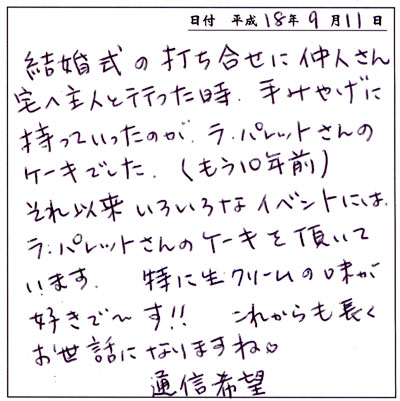 日付 平成18年9月11日
結婚式の打ち合せに仲人さん
宅へ主人と行った時、手みやげに
持っていったのが、ラ・パレットさんの
ケーキでした。(もう10年前)
それ以来いろいろなイベントには、
ラ・パレットさんのケーキを頂いて
います。 特に生クリームの味が
好きで〜す!! これからも長く
お世話になりますね♡
通信希望